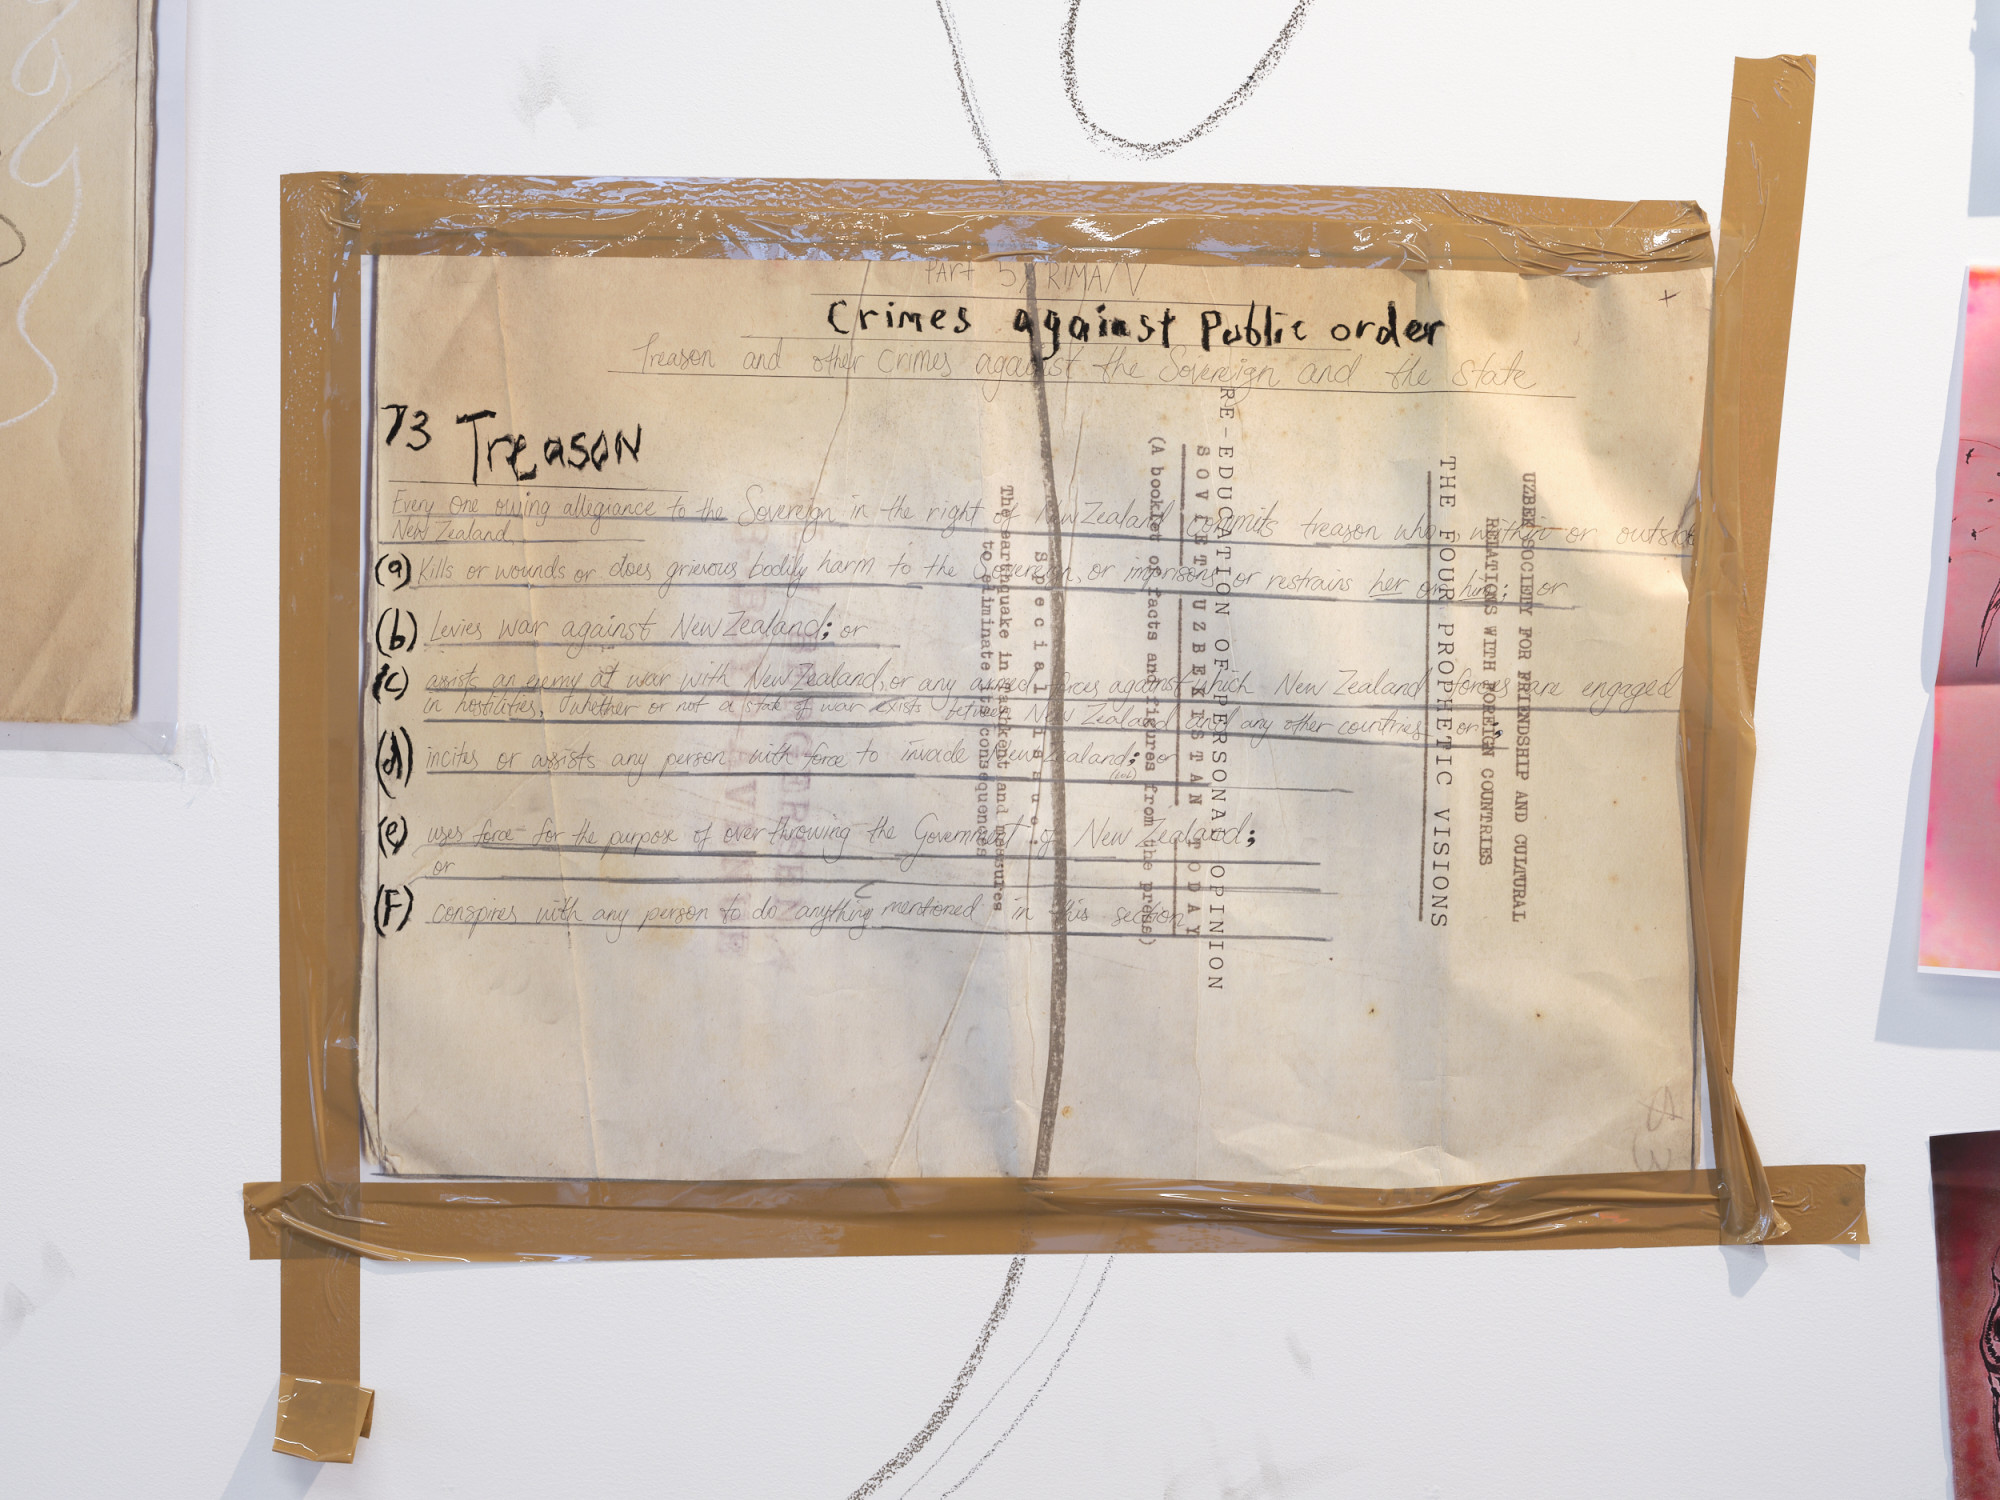 PART 5/RIMA/V
Crimes against Public order
Treason and other Crimes against the Sovereign and the state
73 Treason
Every One owing allegiance to the Sovereign in the right of New Zealand commits treason who, within or outside
New Zealand,
(a) Kills or wounds or does grievous bodily harm to the Sovereign, or imprisons or restrains her or him; or
(b) Levies war against New Zealand; or
(c) assists an enemy at war with New Zealand, or any armed forces against which New Zealand forces are engaged
in hostilities, whether or not a state of war exists between New Zealand and any other countries; or
(d) incites or assists any person with force to invade New Zealand; or
(e) uses force for the purpose of overthrowing the Government of New Zealand;
or
(F) conspires with any person to do anything mentioned in this section
UZBEK SOCIETY FOR FRIENDSHIP AND CULTURAL
RELATIONS WITH FOREIGN COUNTRIES
THE FOUR PROPHETIC VISIONS
RE-EDUCATION OF PERSONAL OPINION
SOVIET UZBEKISTAN TODAY
(A booklet of facts and figures from the press)
Special issue.
The earthquake in Tashkent and measures
to eliminate its consequences